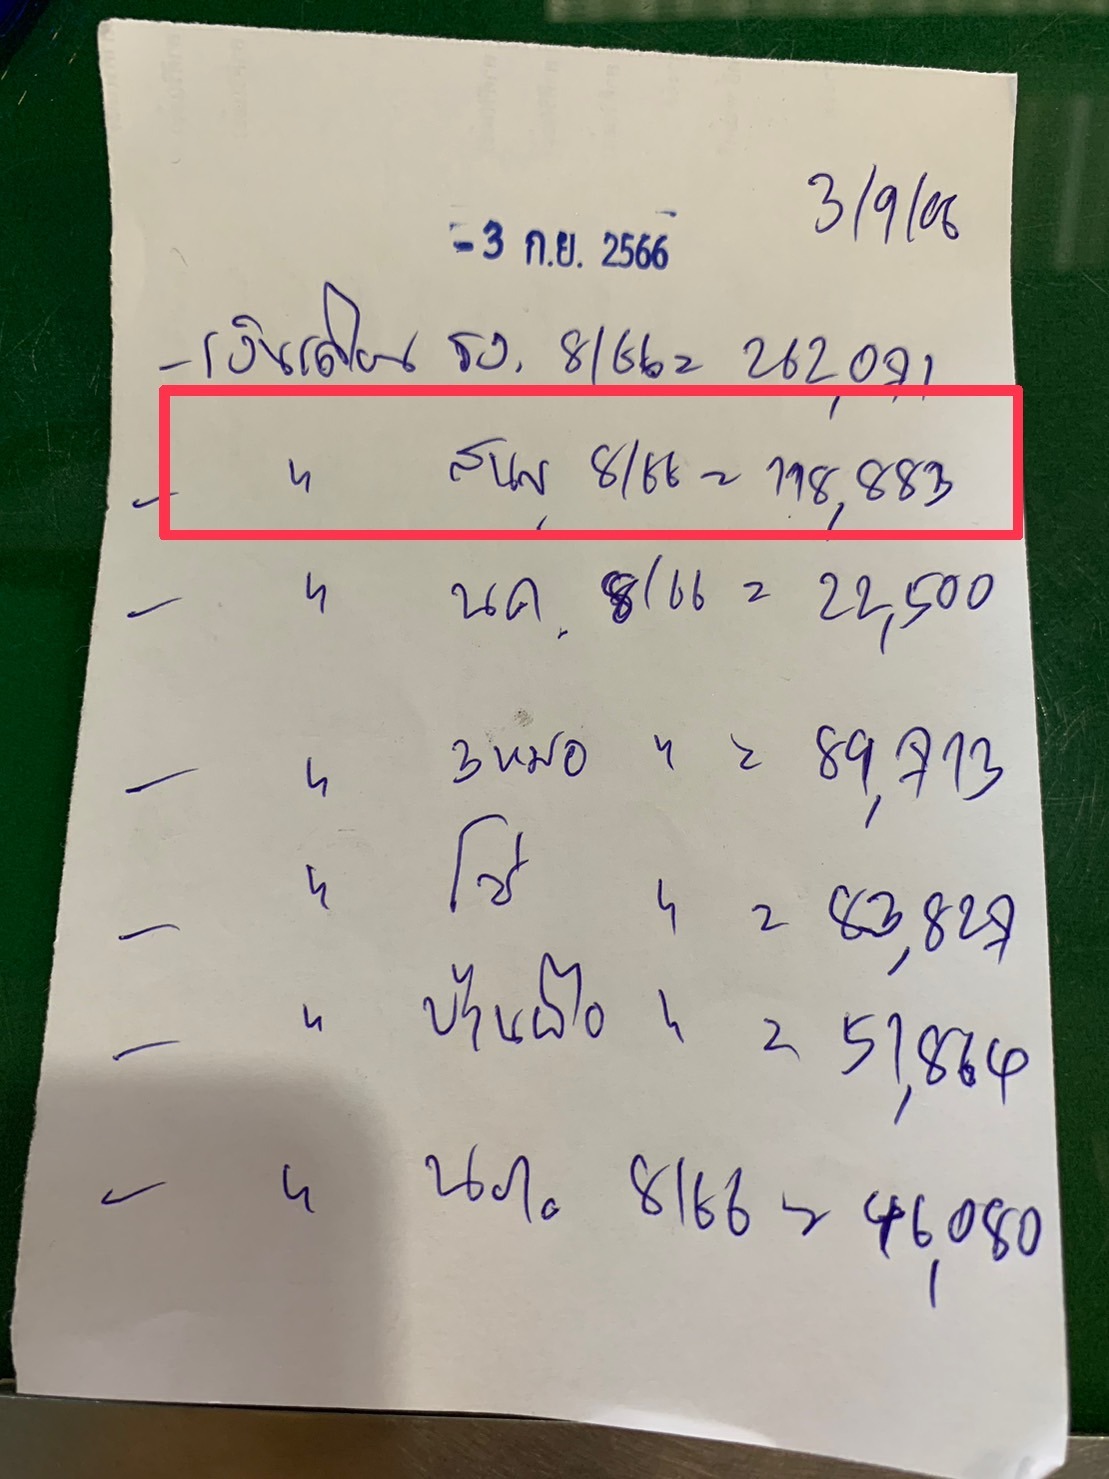 3/9/66
-3 ก.ย. 2566
- เงินเดือน รง. 8/66 = 262,071
- " สนม, 8/66 = 118,883
- " นค. 8/66 = 22,500
- " 3หมอ " = 89,713
- " โซ่ " = 83,827
- " " = 51,864
- " 8/66 = 46,080